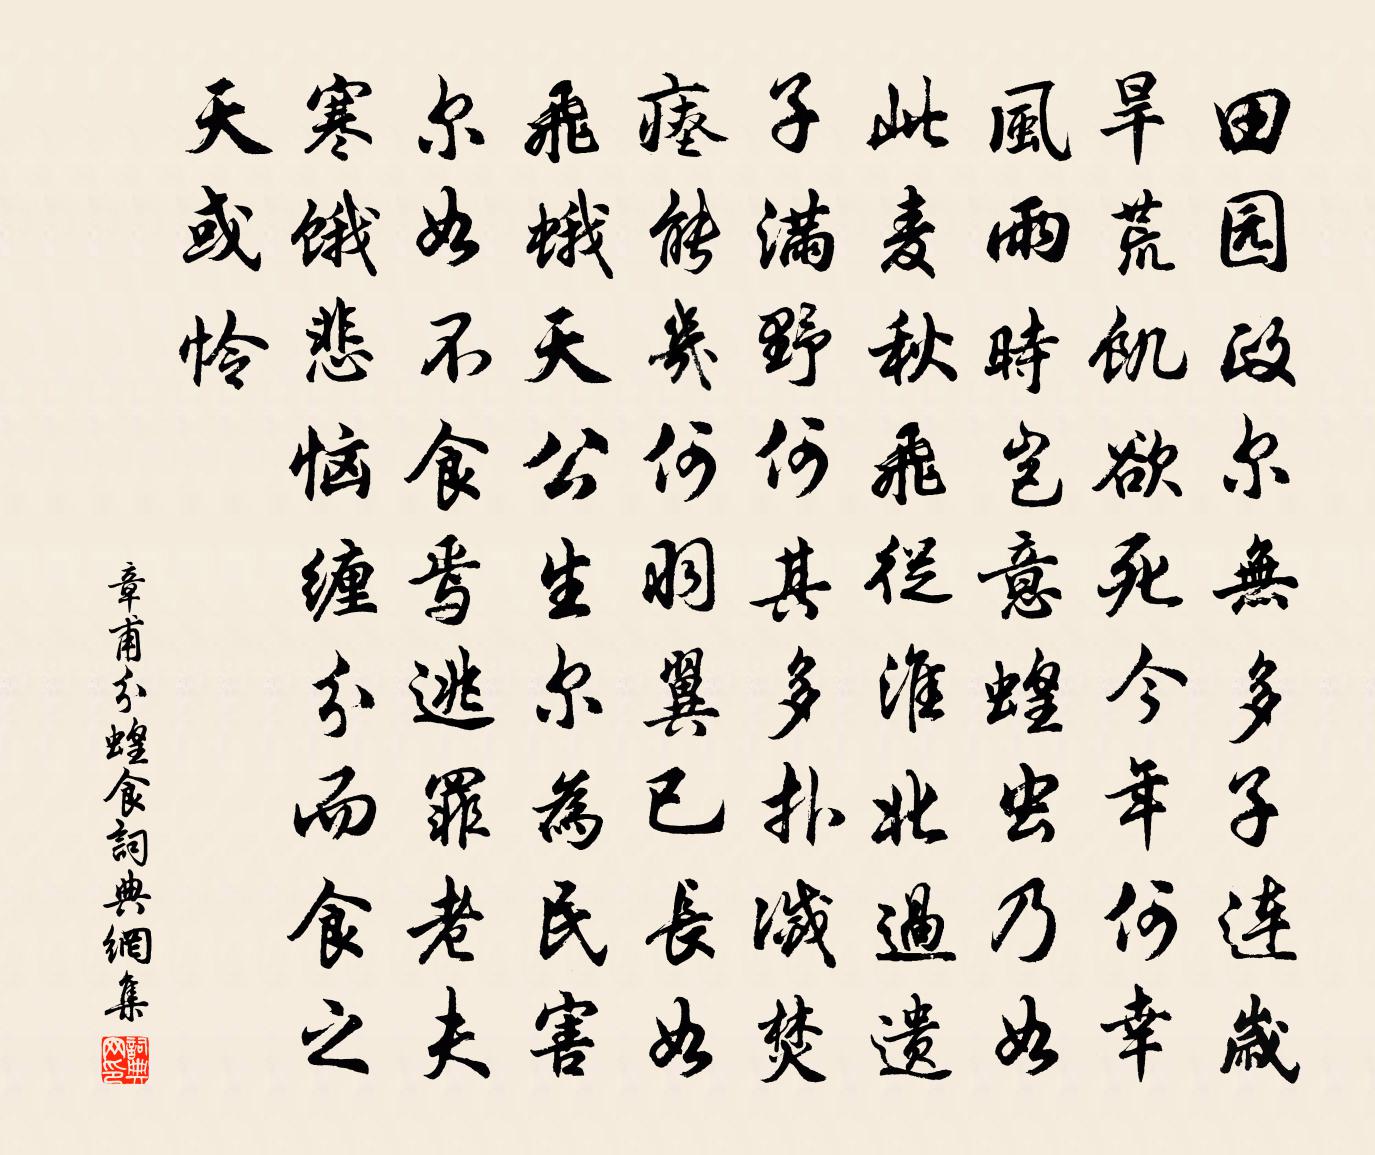 田园政尔無多子連歲
旱荒飢欲死今年何幸
風雨時岂意蝗虫乃如
此麦秋飛從淮北過遗
子滿野何其多扑滅焚
瘞能幾何羽翼已長如
飛蛾天公生尔為民害
尔如不食焉逃罪老夫
寒饿悲恼缠分而食之
天或怜
章甫分蝗食詞典網集
詞典网印